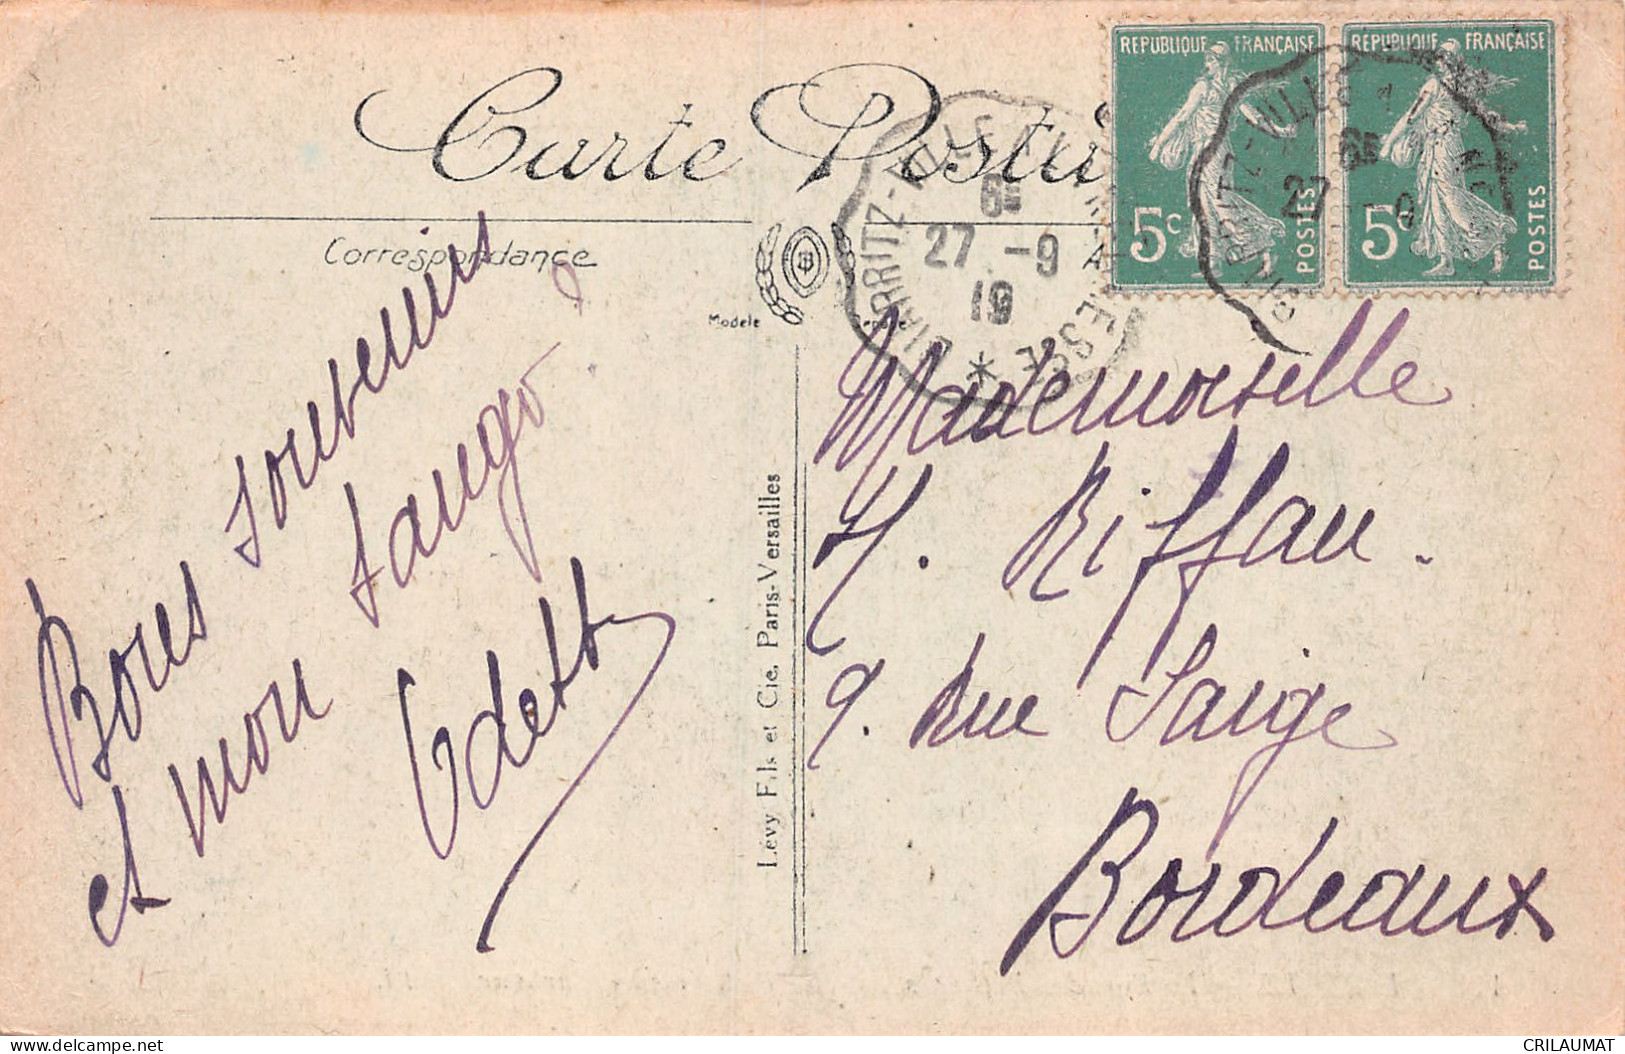 Carte Posta
Correspondance
Modèle
A
Déposé
REPUBLIQUE FRANÇAISE
5c
POSTES
REPUBLIQUE FRANÇAISE
5c
POSTES
BIARRITZ-VILLE A
6E
27 -9
19
BIARRITZ-VILLE A
6E
27 -9
Bons souvenirs
et mon tango
Odette
Lévy Fils et Cie, Paris-Versailles
Mademoiselle
Y. Riffau.
9. Rue Saige
Bordeaux
www.delcampe.net
CRILAUMAT